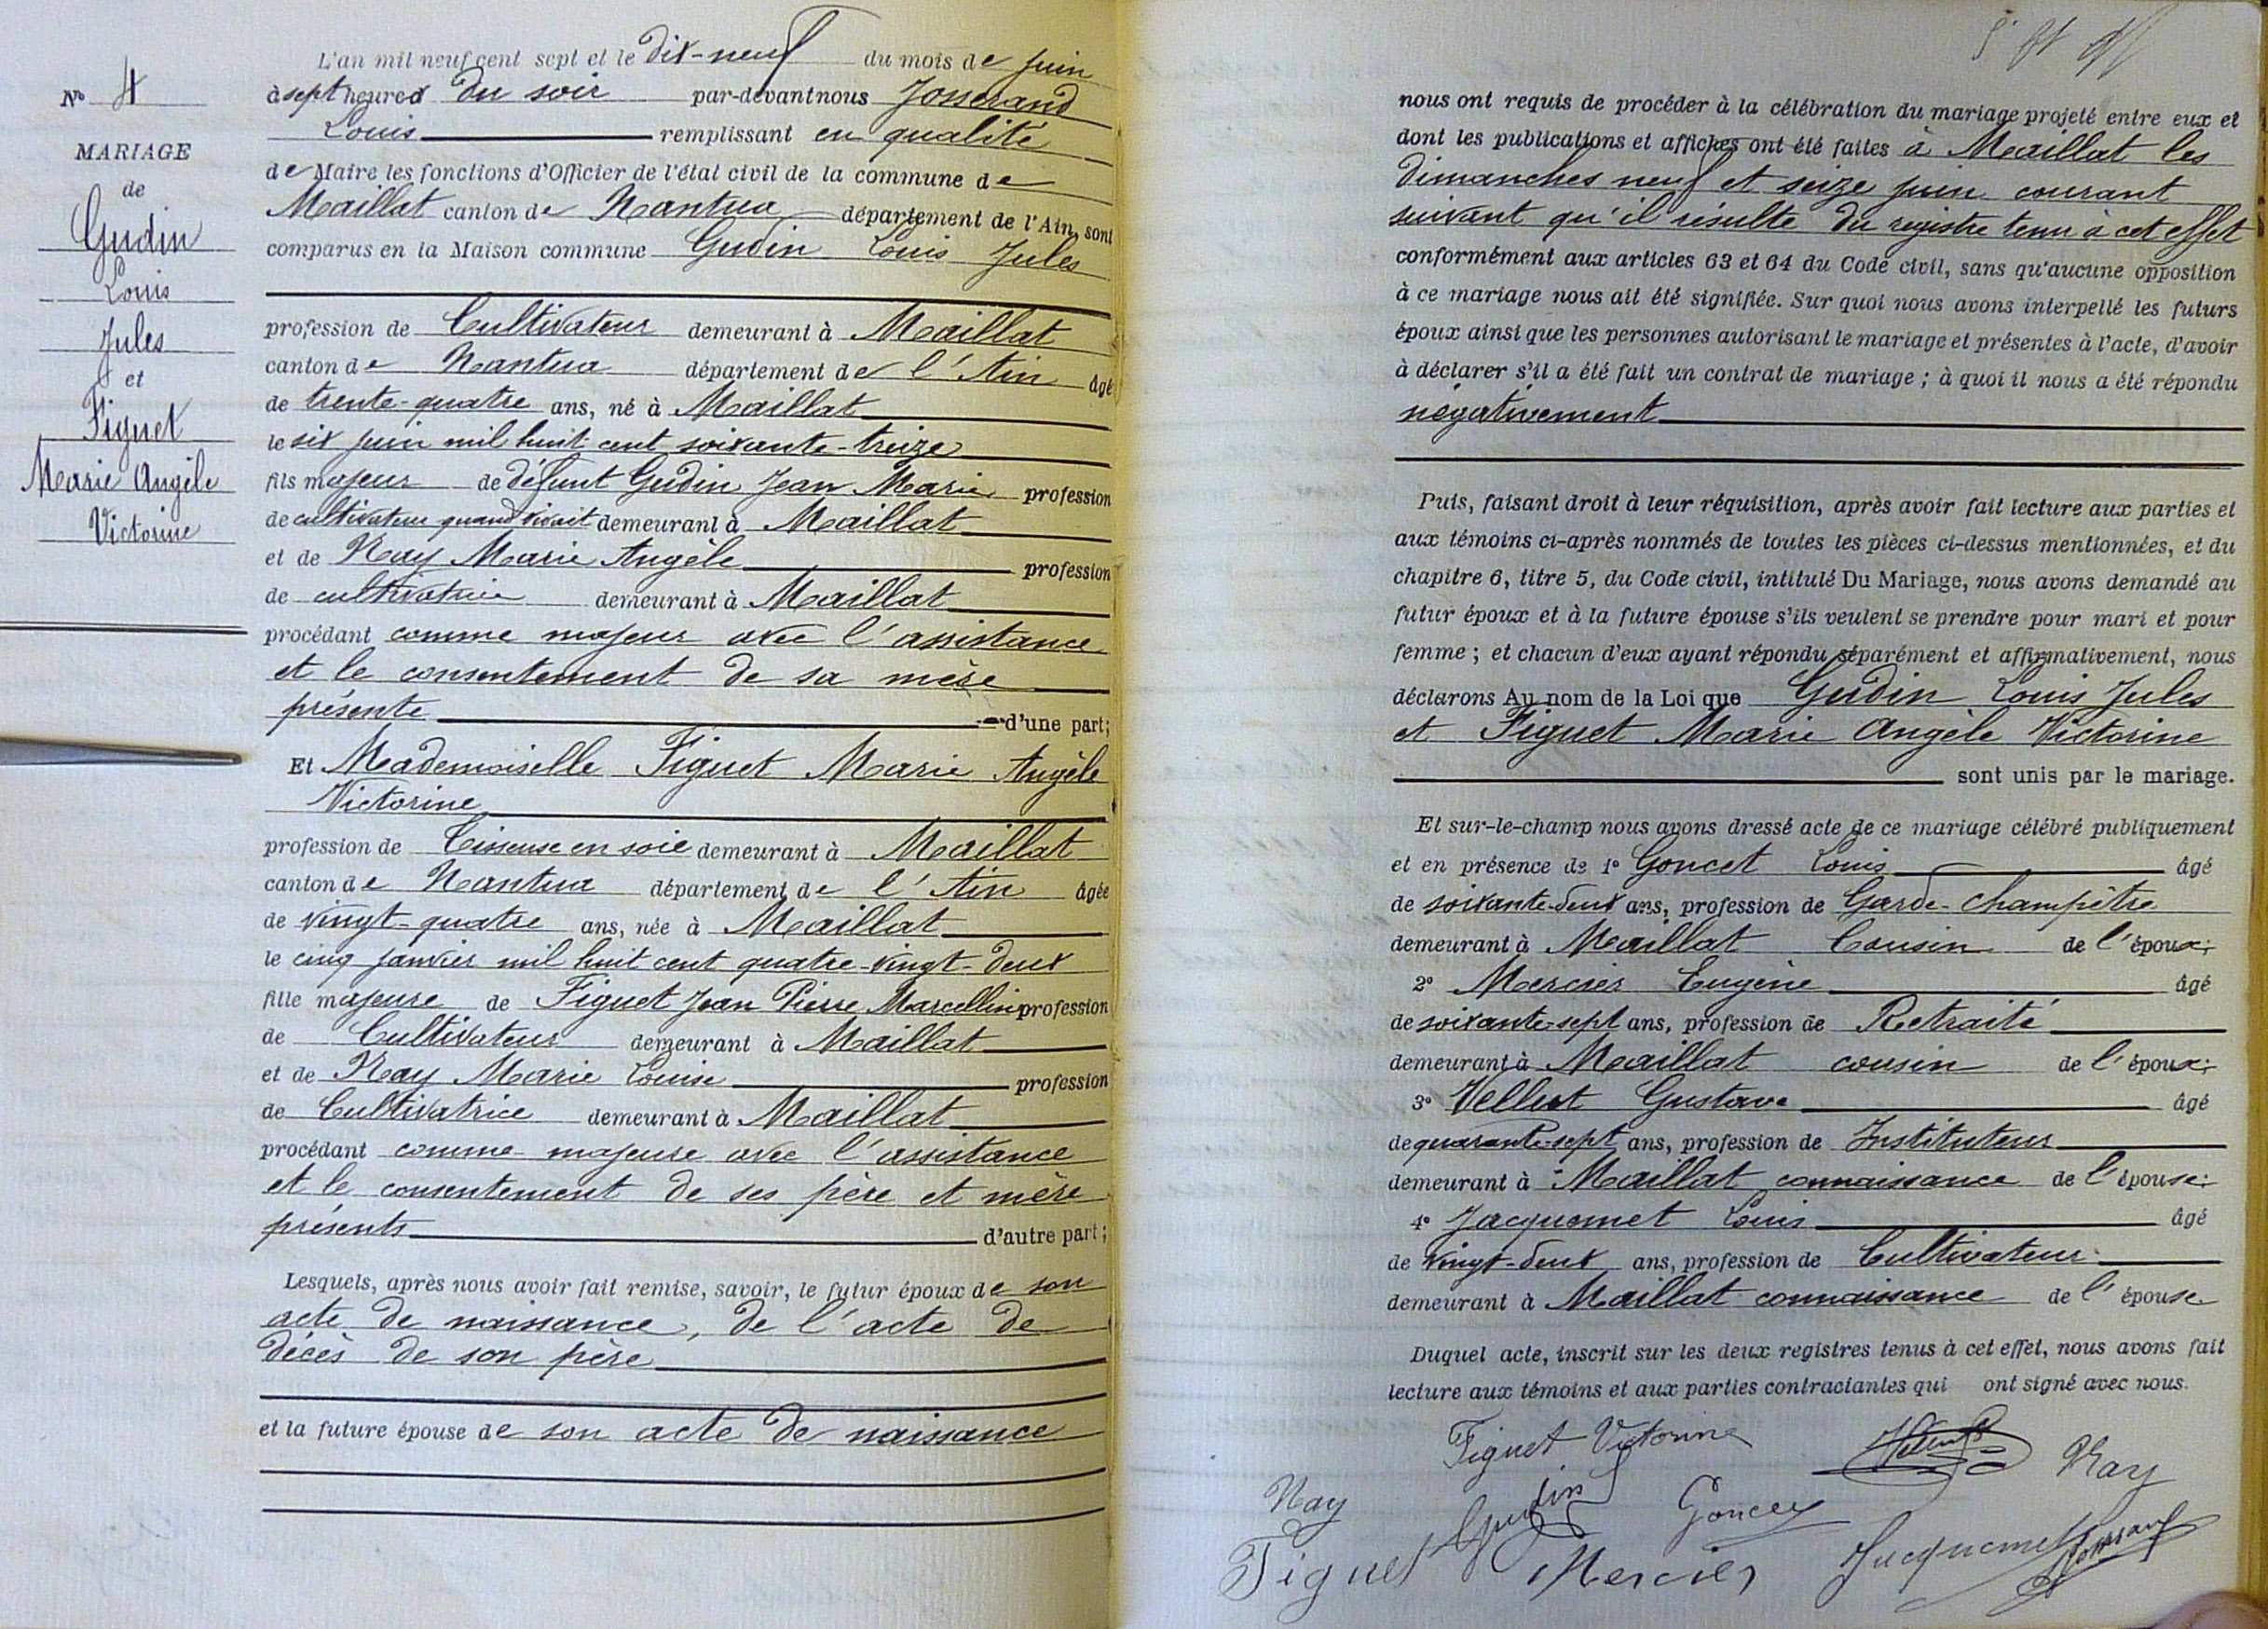 N° 4
MARIAGE
de
Gudin
Louis
Jules
et
Figuet
Marie Angèle
Victorine
L'an mil neuf cent sept et le dix-neuf du mois de juin
à sept heures du soir par-devant nous Josserand
Louis remplissant en qualité
de Maire les fonctions d'Officier de l'état civil de la commune de
Maillat canton de Nantua département de l'Ain, sont
comparus en la Maison commune Gudin Louis Jules
profession de Cultivateur demeurant à Maillat
canton de Nantua département de l'Ain âgé
de trente-quatre ans, né à Maillat
le six juin mil huit cent soixante-treize
fils majeur de défunt Gudin Jean Marie profession
de cultivateur quand vivait demeurant à Maillat
et de Nay Marie Angèle profession
de cultivatrice demeurant à Maillat
procédant comme majeur avec l'assistance
et le consentement de sa mère
présente d'une part;
Et Mademoiselle Figuet Marie Angèle
Victorine
profession de Tisseuse en soie demeurant à Maillat
canton de Nantua département de l'Ain âgée
de vingt-quatre ans, née à Maillat
le cinq janvier mil huit cent quatre-vingt-deux
fille majeure de Figuet Jean Pierre Marcellin profession
de Cultivateur demeurant à Maillat
et de Nay Marie Louise profession
de Cultivatrice demeurant à Maillat
procédant comme majeure avec l'assistance
et le consentement de ses père et mère
présents d'autre part;
Lesquels, après nous avoir fait remise, savoir, le futur époux de son
acte de naissance, de l'acte de
décès de son père
et la future épouse de son acte de naissance
nous ont requis de procéder à la célébration du mariage projeté entre eux et
dont les publications et affiches ont été faites à Maillat les
dimanches neuf et seize juin courant
suivant qu'il résulte du registre tenu à cet effet
conformément aux articles 63 et 64 du Code civil, sans qu'aucune opposition
à ce mariage nous ait été signifiée. Sur quoi nous avons interpellé les futurs
époux ainsi que les personnes autorisant le mariage et présentes à l'acte, d'avoir
à déclarer s'il a été fait un contrat de mariage ; à quoi il nous a été répondu
négativement
Puis, faisant droit à leur réquisition, après avoir fait lecture aux parties et
aux témoins ci-après nommés de toutes les pièces ci-dessus mentionnées, et du
chapitre 6, titre 5, du Code civil, intitulé Du Mariage, nous avons demandé au
futur époux et à la future épouse s'ils veulent se prendre pour mari et pour
femme ; et chacun d'eux ayant répondu séparément et affirmativement, nous
déclarons Au nom de la Loi que Gudin Louis Jules
et Figuet Marie Angèle Victorine
sont unis par le mariage.
Et sur-le-champ nous avons dressé acte de ce mariage célébré publiquement
et en présence de 1° Goncet Louis âgé
de soixante-deux ans, profession de Garde-Champêtre
demeurant à Maillat Cousin de l'époux;
2° Mercier Eugène âgé
de soixante-sept ans, profession de Retraité
demeurant à Maillat cousin de l'époux;
3° Gustave âgé
de quarante-sept ans, profession de Instituteur
demeurant à Maillat connaissance de l'épouse;
4° Jacquemet Louis âgé
de vingt-deux ans, profession de Cultivateur
demeurant à Maillat connaissance de l'épouse
Duquel acte, inscrit sur les deux registres tenus à cet effet, nous avons fait
lecture aux témoins et aux parties contractantes qui ont signé avec nous.
Figuet Victorine
Nay
Nay Gudin Goncet
Figuet Mercier Jacquemet Josserand